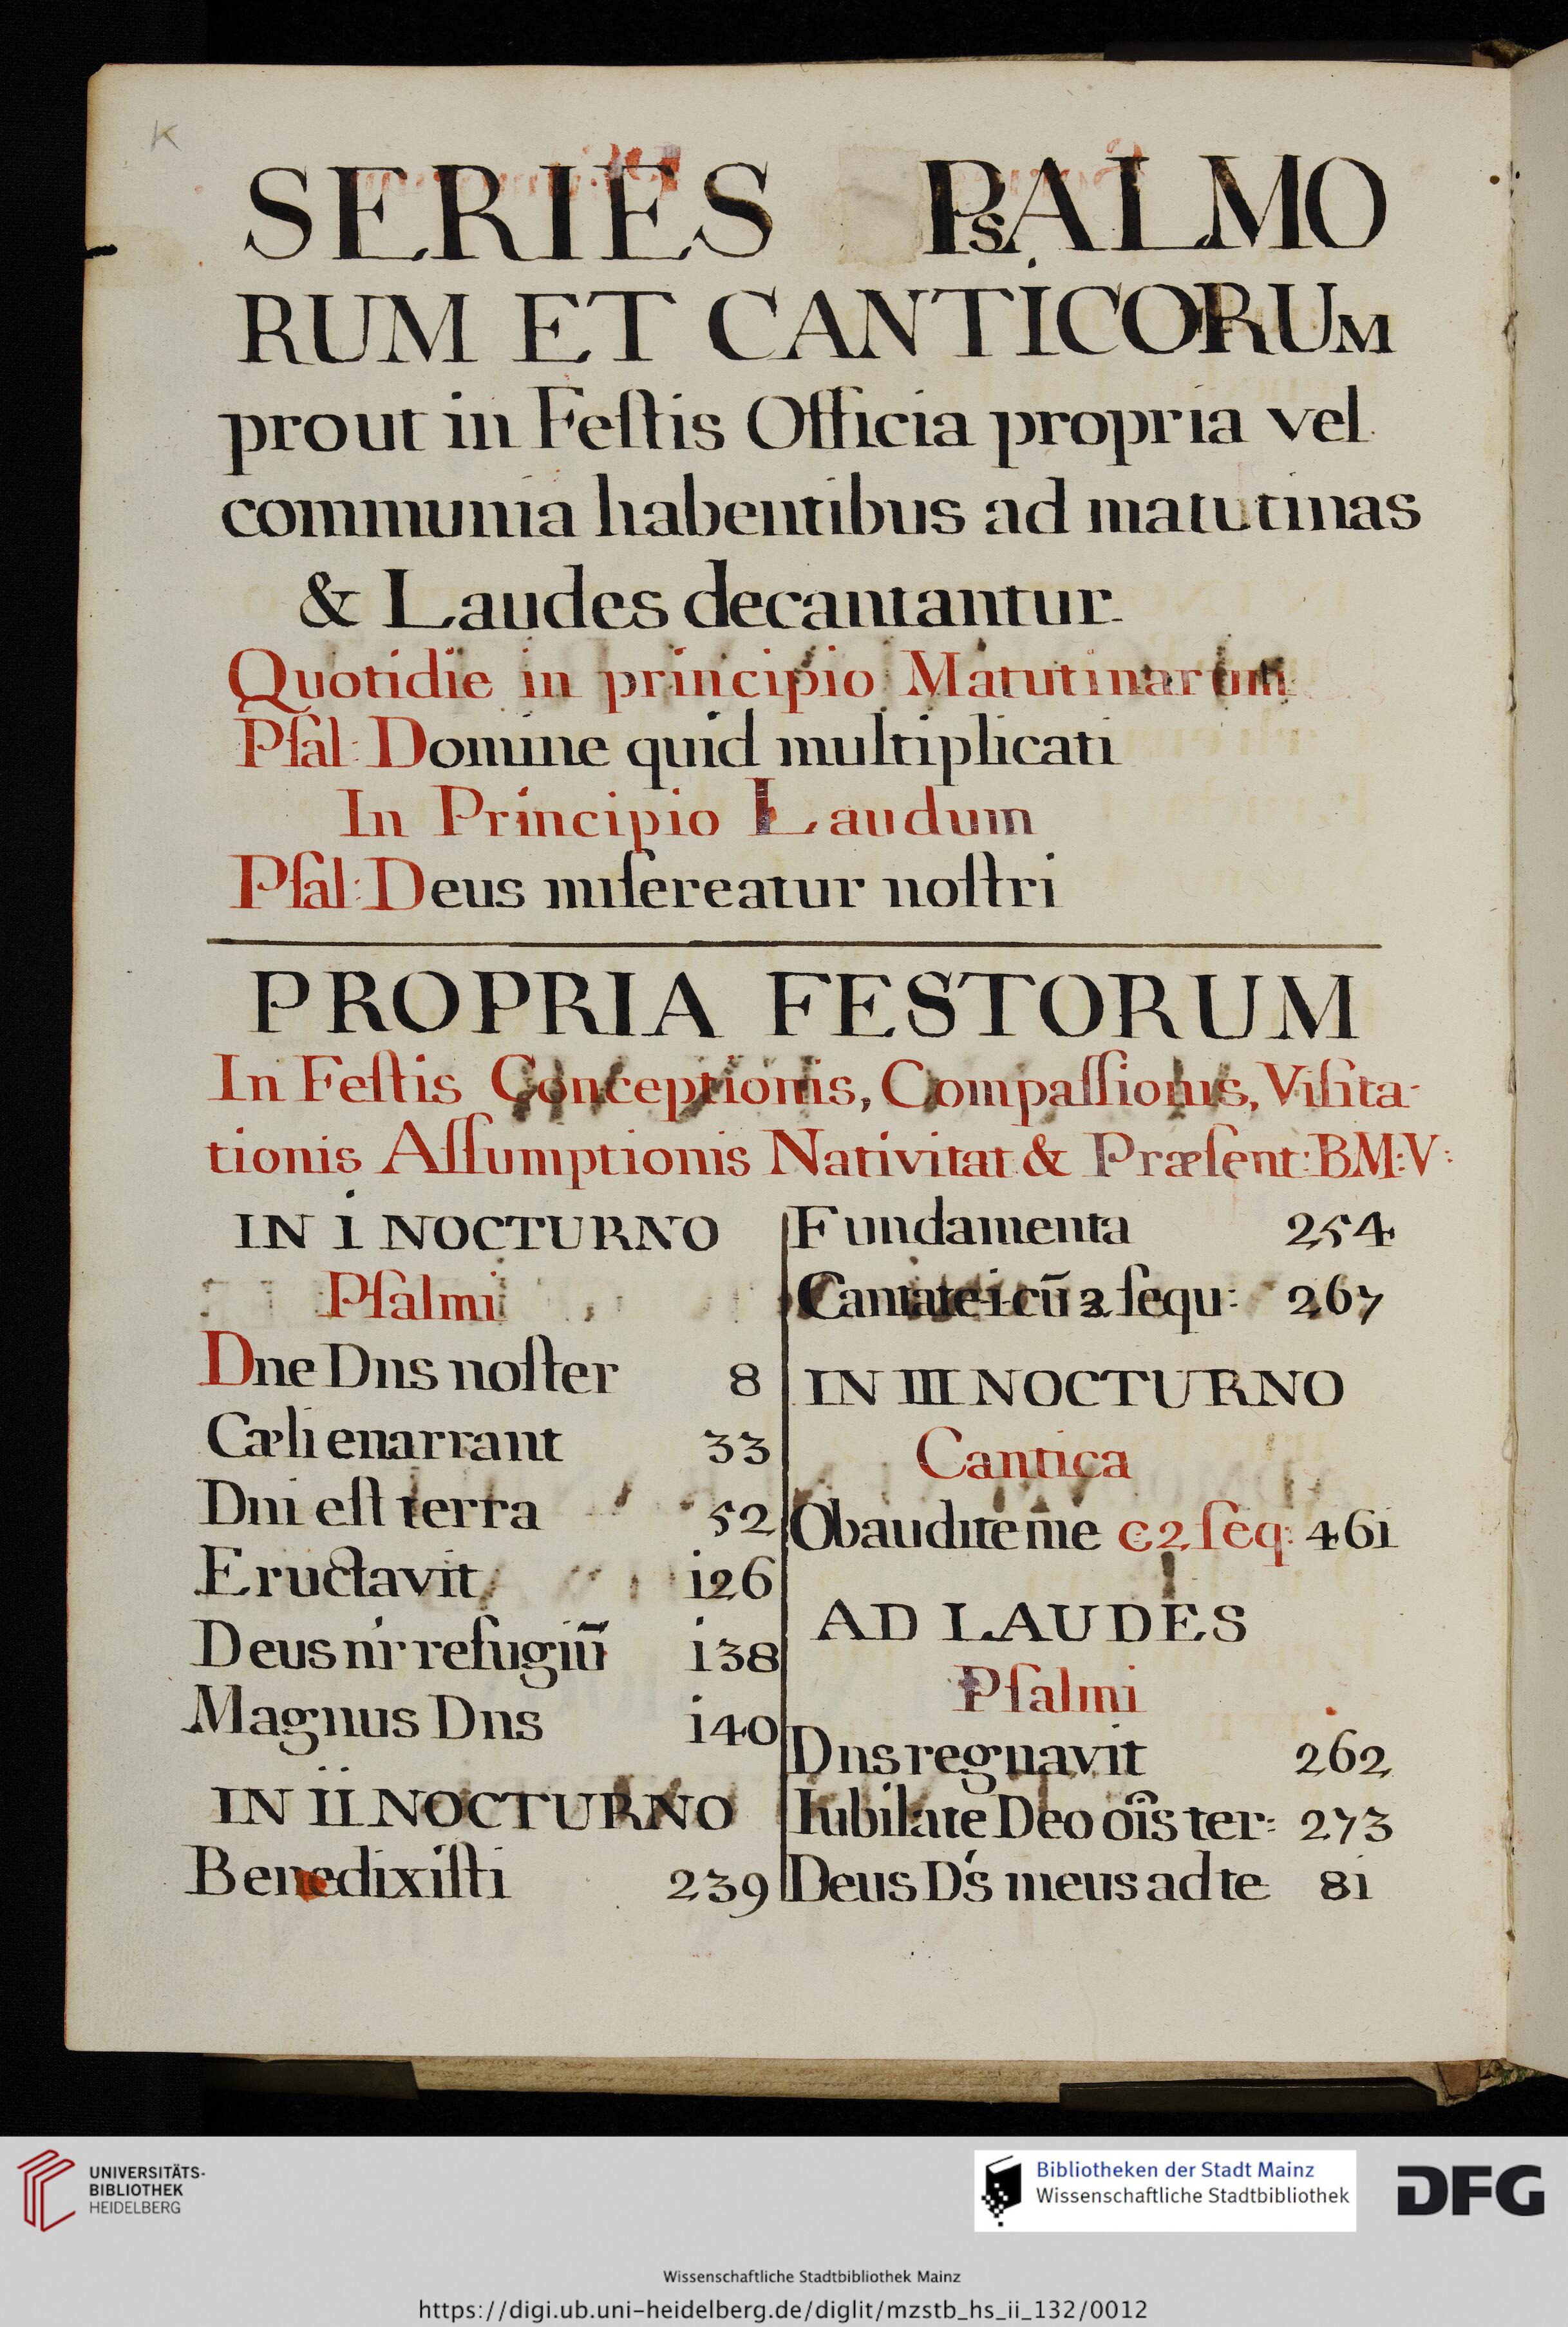 K
SERIES PsALMO
RUM ET CANTICORUM
prout in Feſtis Officia propria vel
communia habentibus ad matutinas
& Laudes decantantur.
Quotidie in principio Matutinarum
Pſal: Domine quid multiplicati
In Principio Laudum
Pſal: Deus miſereatur noſtri
PROPRIA FESTORUM
In Feſtis Conceptionis, Compaſſionis, Viſita-
tionis Aſſumptionis Nativitat: & Præſent: BM:V:
IN i NOCTURNO
Pſalmi
Dne Dns noſter 8
Cæli enarrant 33
Dni eſt terra 52
Eructavit i26
Deus nr refugiū i38
Magnus Dns i40
IN ii NOCTURNO
Benedixiſti 239
Fundamenta 254
Cantate i cū 2 ſequ: 267
IN III NOCTURNO
Cantica
Obaudite me c 2 ſeq: 46i
AD LAUDES
Pſalmi
Dns regnavit 262
Iubilate Deo oīs ter: 273
Deus Ds meus ad te 8i
UNIVERSITÄTS-
BIBLIOTHEK
HEIDELBERG
Bibliotheken der Stadt Mainz
Wissenschaftliche Stadtbibliothek
DFG
Wissenschaftliche Stadtbibliothek Mainz
https://digi.ub.uni-heidelberg.de/diglit/mzstb_hs_ii_132/0012